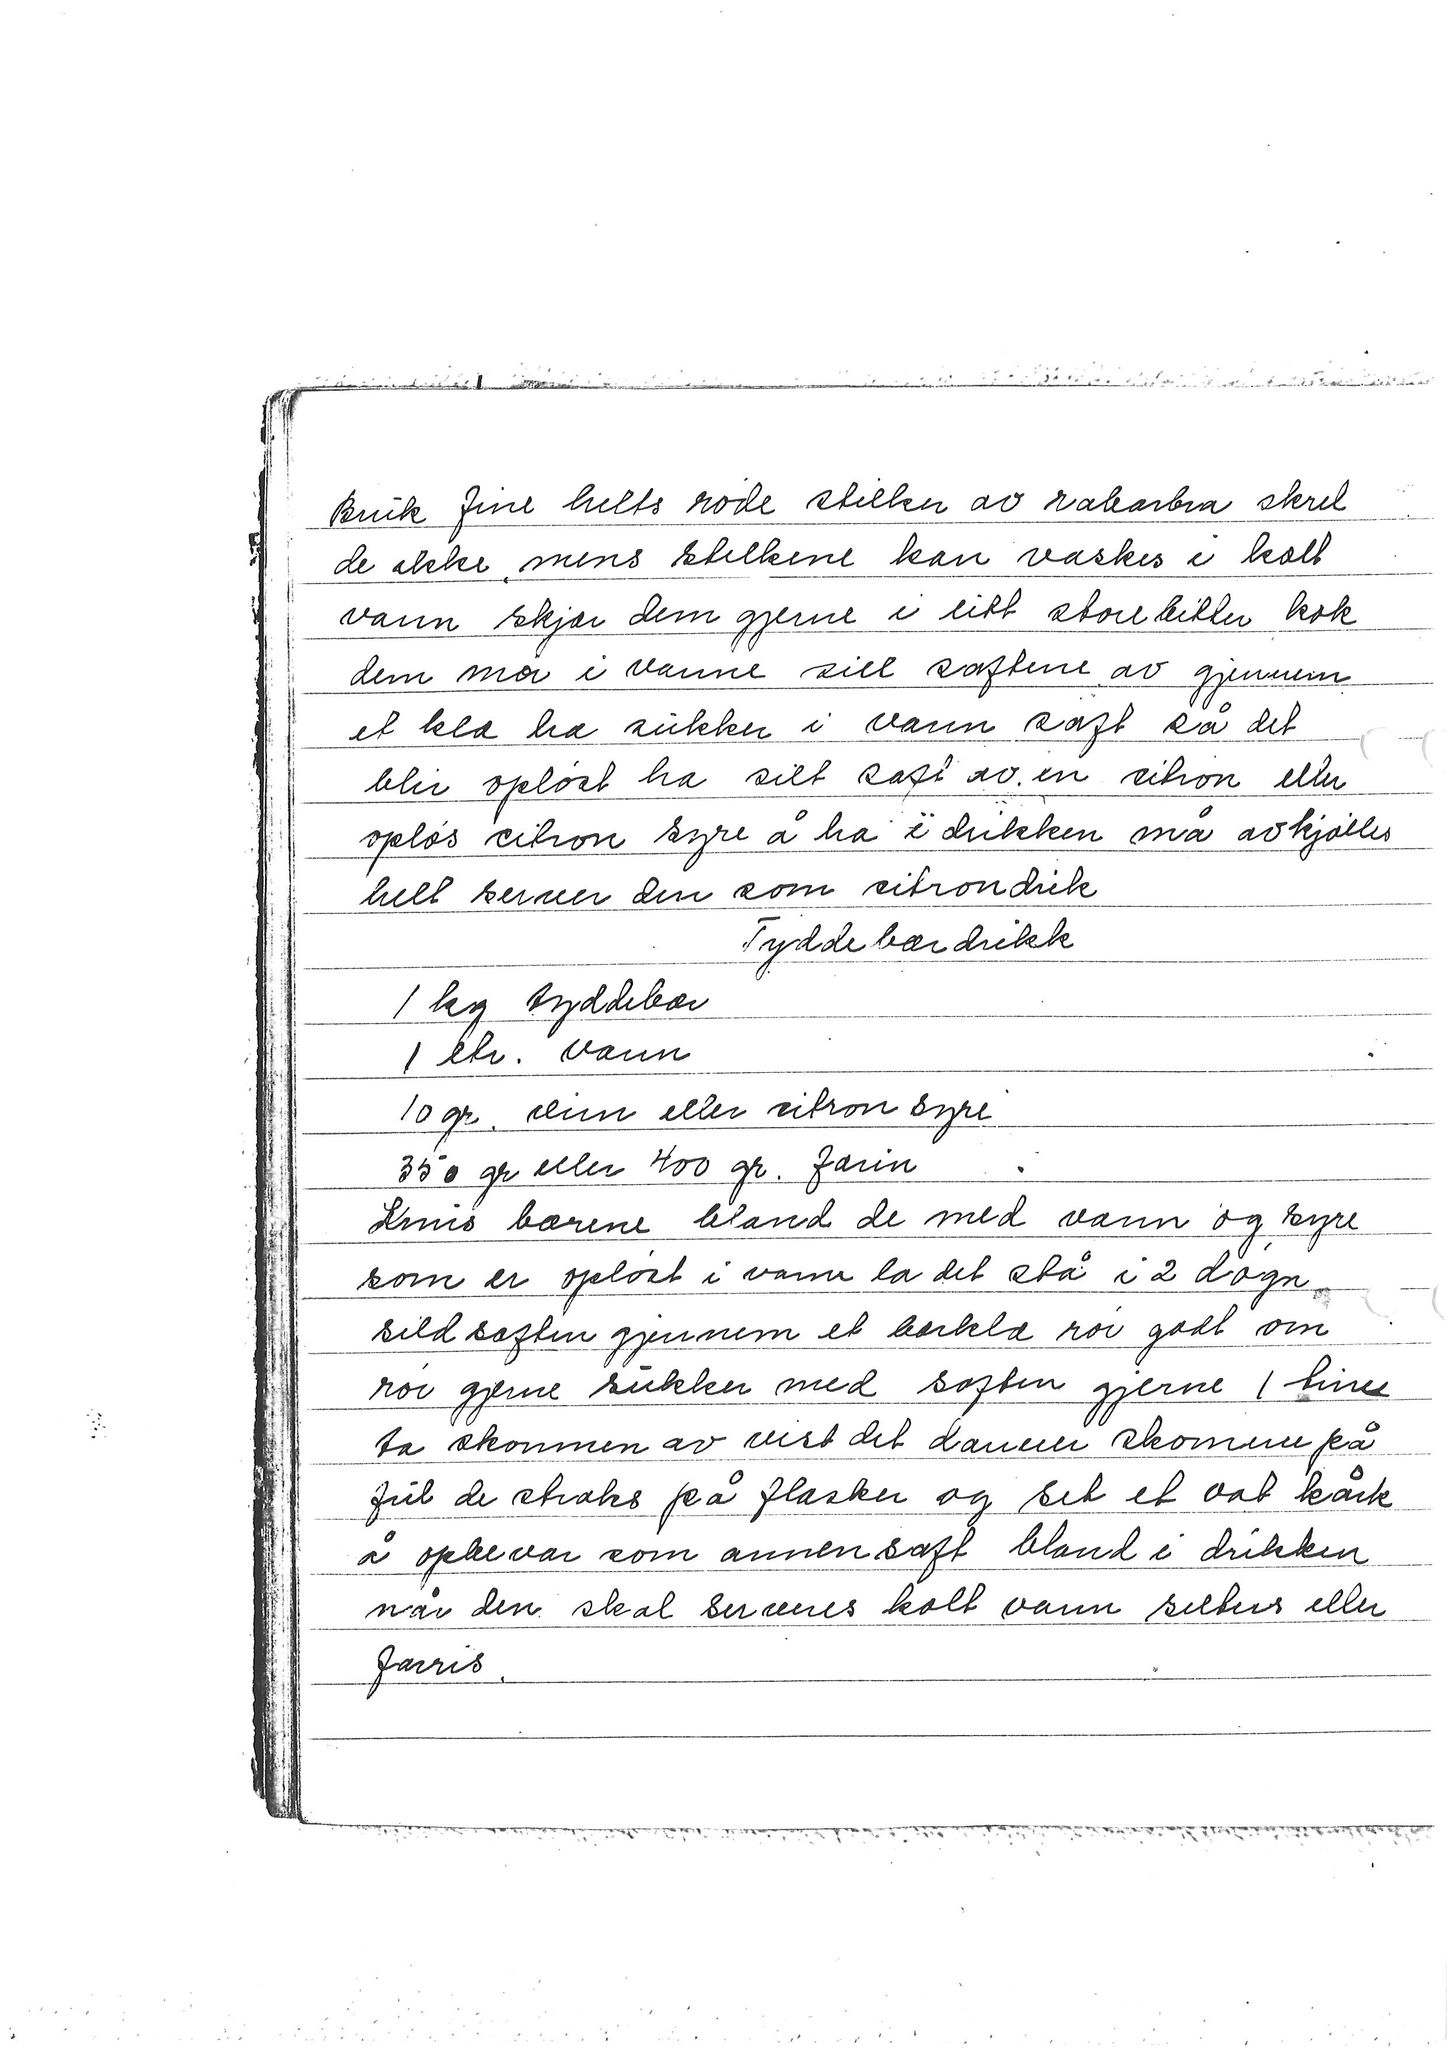 Bruk fine helts røde stilker av rabarbra skrel
de ikke, mens stelkene kan vaskes i kalt
vann skjær dem gjerne i litt store bitter kok
dem mør i vanne sill saftene av gjennem
et klæ ha sukker i varm saft så det
blir opløst ha silt saft av en sitron eller
opløs citron syre å ha i drikken må avkjølles
helt server den som sitrondrik
Tyddebær drikk
1 kg tyddebær
1 ltr. vann
10 gr. vinn eller sitron syre
350 gr eller 400 gr. farin
Knus bærene bland de med vann og syre
som er opløst i vanne la det stå i 2 døgn
sild saften gjennem et bærklæ rør godt om
rør gjerne sukker med saften gjerne 1 time
ta skommen av vist det danner skomme på
ful de straks på flasker og set et vat kårk
å opbevar som annen saft bland i drikken
når den skal serveres kalt vann selters eller
farris.